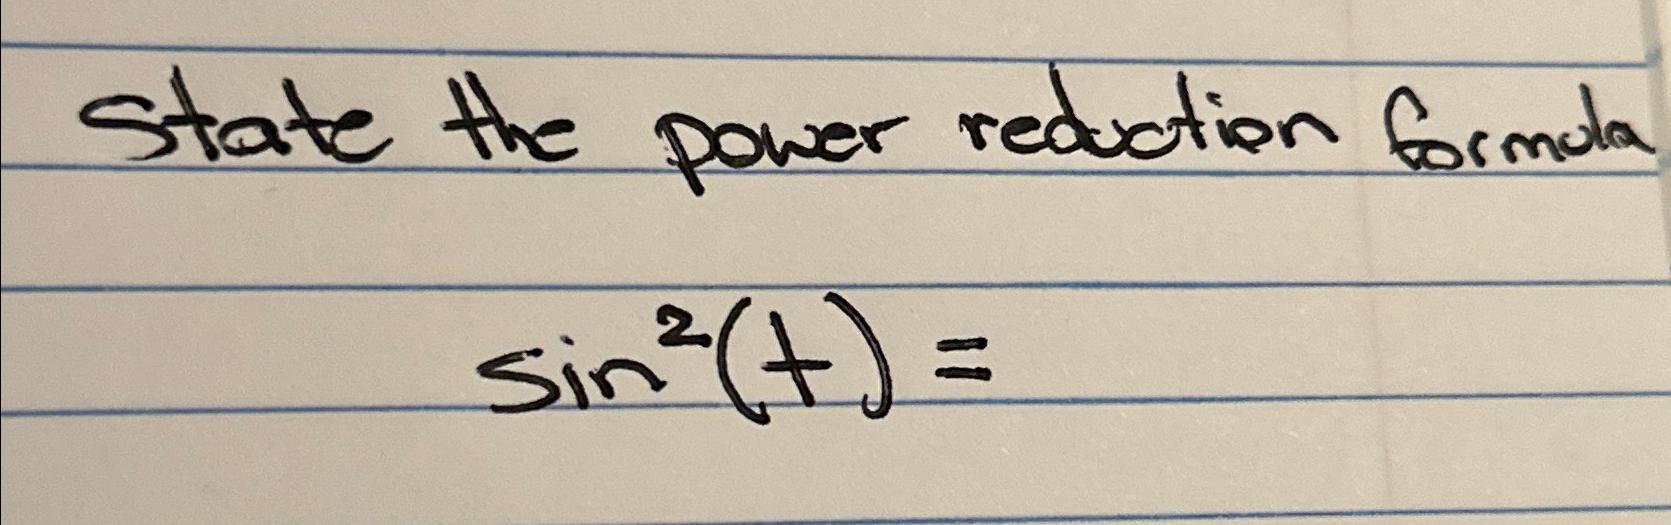 State the power reduction formula
sin²(t) =